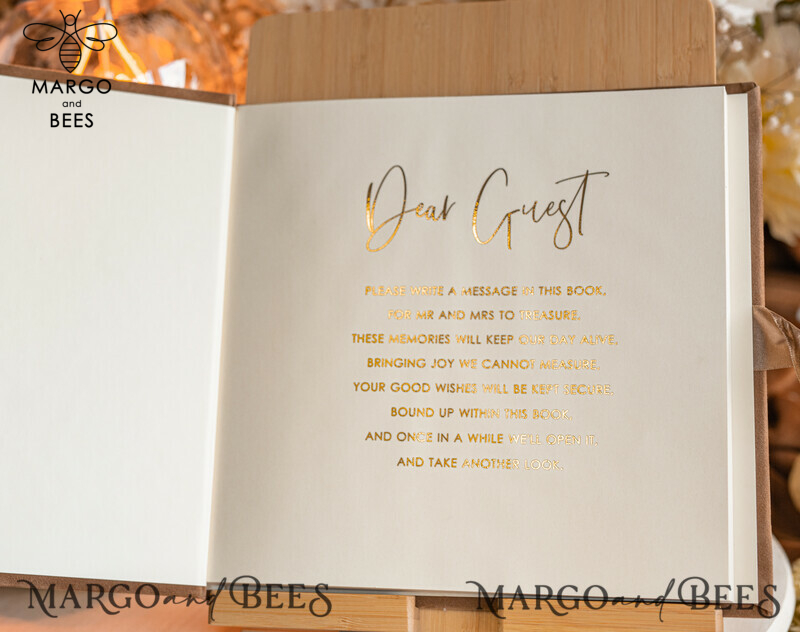 MARGO
and
BEES
Dear Guest
PLEASE WRITE A MESSAGE IN THIS BOOK.
FOR MR AND MRS TO TREASURE.
THESE MEMORIES WILL KEEP OUR DAY ALIVE.
BRINGING JOY WE CANNOT MEASURE.
YOUR GOOD WISHES WILL BE KEPT SECURE.
BOUND UP WITHIN THIS BOOK.
AND ONCE IN A WHILE WE'LL OPEN IT.
AND TAKE ANOTHER LOOK.
MARGO and BEES
MARGO and BEES